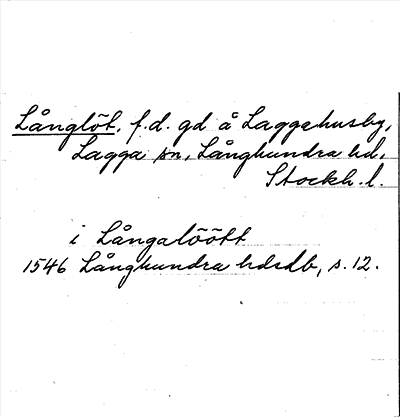 Långlöt, f.d. gd å Laggahusby,
Lagga sn, Långhundra hd,
Stockh. l.
i Långalöött
1546 Långhundra hdsdb, s. 12.